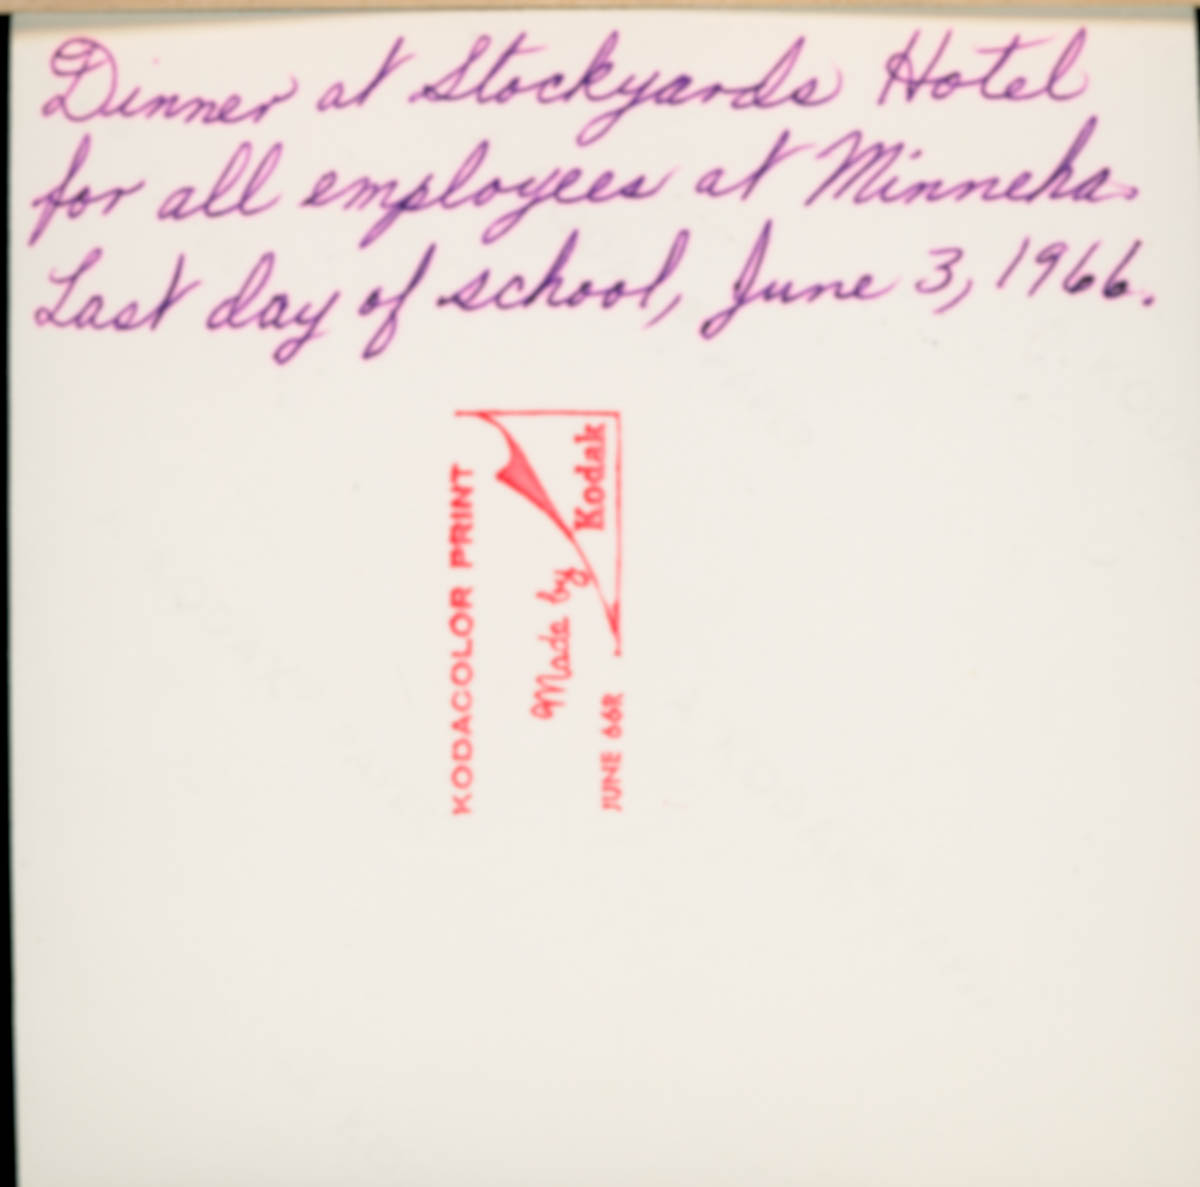 Dinner at Stockyards Hotel
for all employees at Minneha.
Last day of school, June 3, 1966.
KODACOLOR PRINT
Made by
Kodak
JUNE 66R